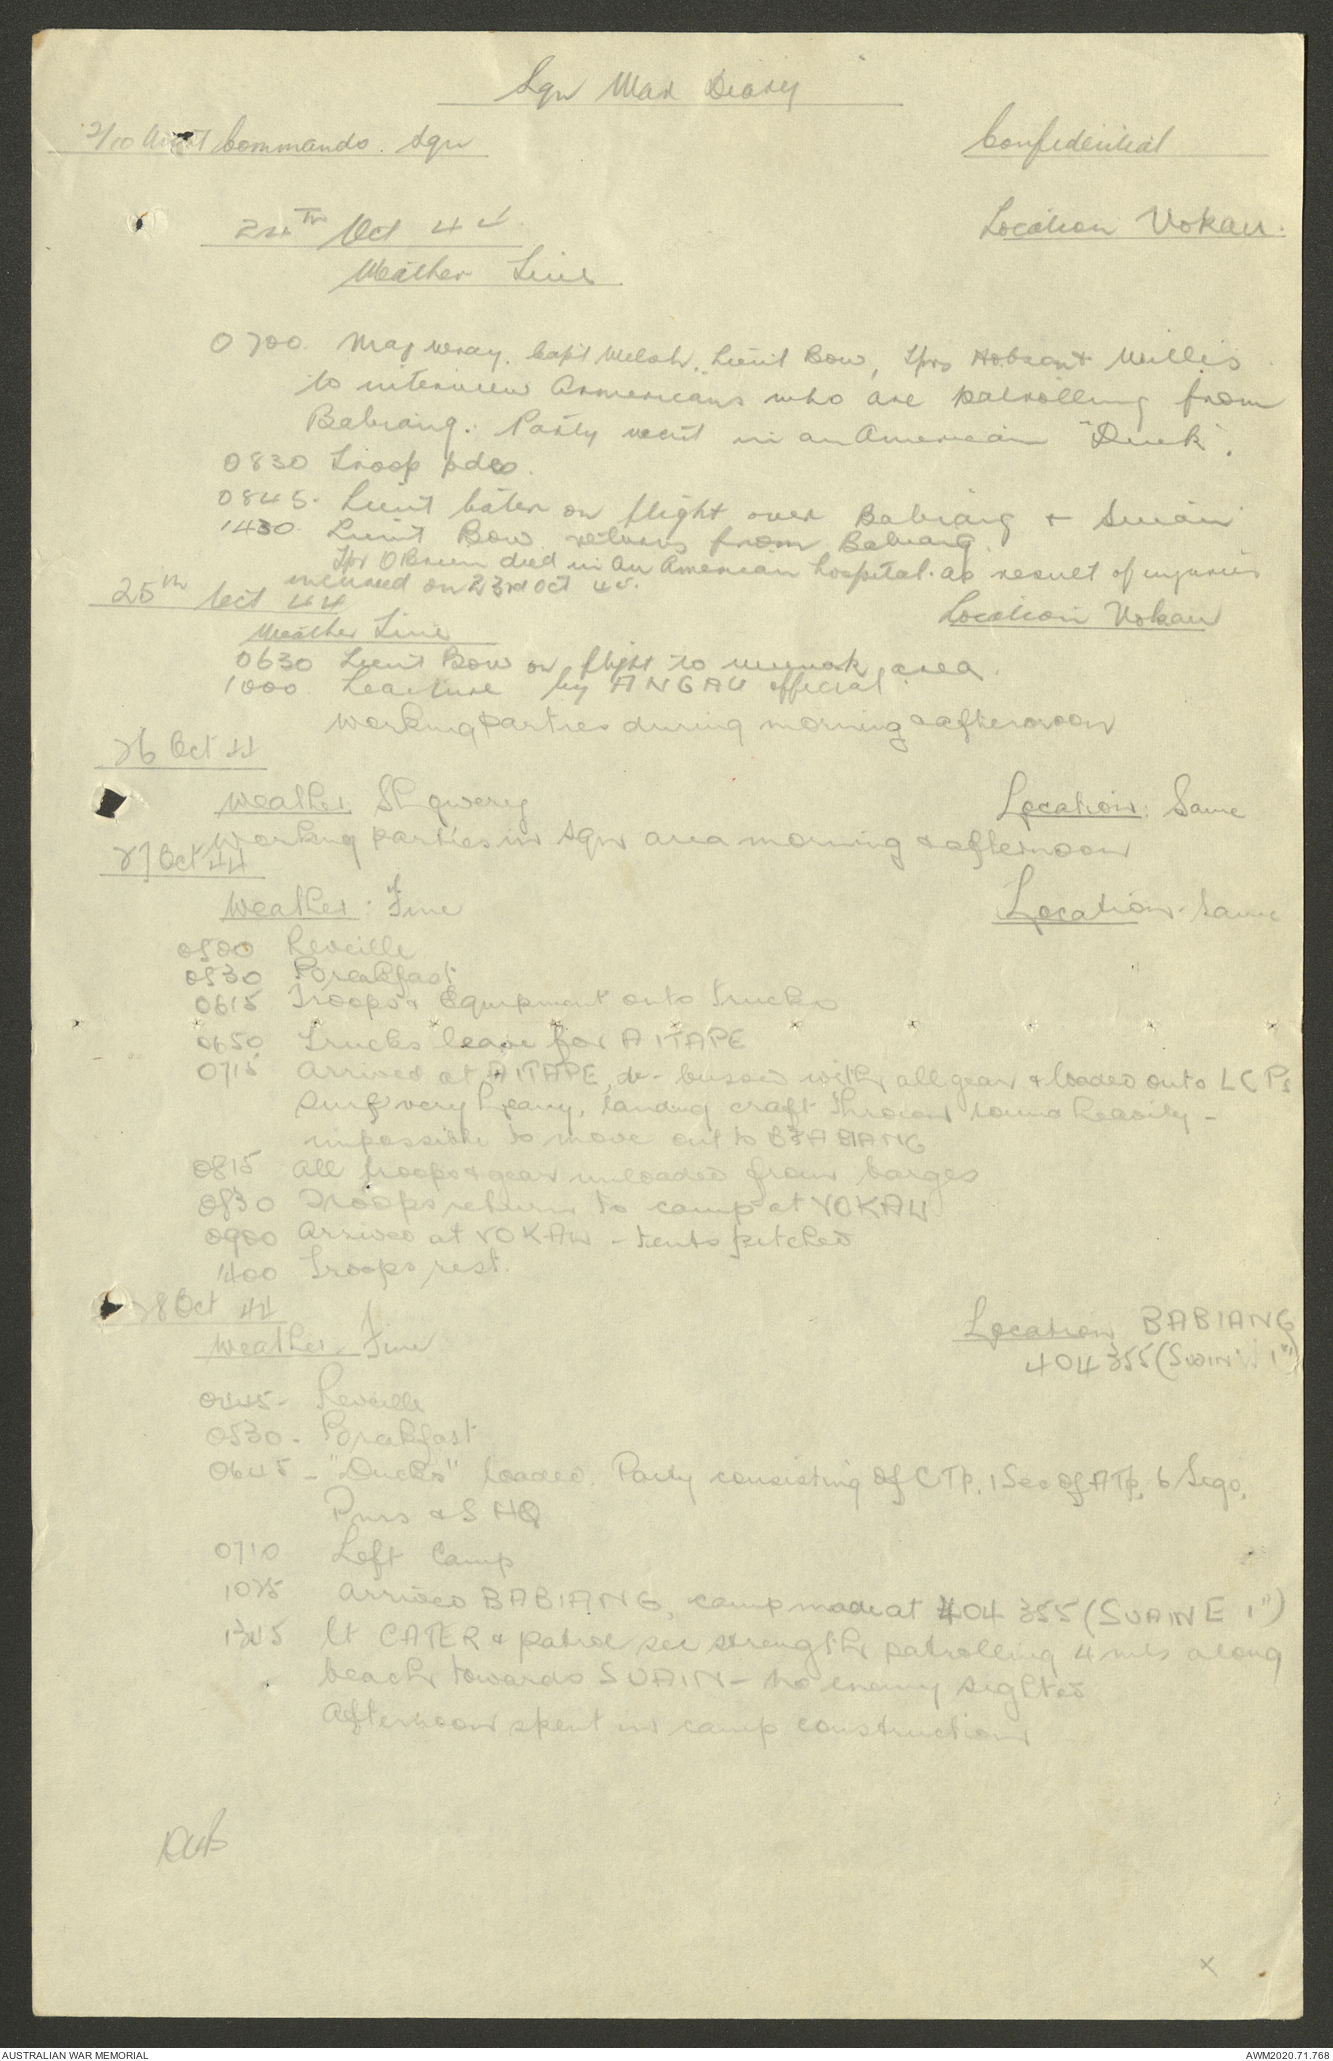 Sqn War Diary
2/10 Aust Commando. Sqn Confidential
24TH Oct 44 Location Vokau.
Weather Fine
0700 Maj Wray. Capt Welsh. Lieut Bow, Tprs Hobson & Willis
to interview Armericans who are patrolling from
Babiang. Party went in an American "Duck".
0830 Troop pdes.
0845. Lieut Cater on flight over Babiang & Suain
1430 Lieut Bow returns from Babiang.
Tpr O'Brien died in an American hospital. as result of injuries
incurred on 23rd Oct 44.
25th Oct 44 Location Vokau
Weather Fine
0630 Lieut Bow on flight to area.
1000 Leacture by ANGAU official
Working parties during morning & afternoon
26 Oct 44
Weather Showery Location: Same
Working parties in sqn area morning & afternoon
27 Oct 44
Weather: Fine Location. Same
0500 Reveille
0530 Breakfast
0615 Troops & Equipment onto trucks
0650 Trucks leave for AITAPE
0715 Arrived at AITAPE, de-bussed with all gear & loaded onto LCPs
Surf very heavy, landing craft thrown round heavily -
impossible to move out to BABIANG
0815 All troops & gear unloaded from barges
0830 Troops return to camp at VOKAU
0900 Arrived at VOKAU - tents pitched
1400 Troops rest.
28 Oct 44 Location BABIANG
Weather. Fine 404355 (SUAIN 1")
0445 - Reveille
0530 - Breakfast
0645 - "Ducks" loaded. Party consisting of C Tp, 1 Sec of A Tp, 6 Sigs,
Pnrs & SHQ
0710 Left Camp
1025 Arrived BABIANG, camp made at 404355 (SUAIN E 1")
1345 Lt CATER & patrol sec strength patrolling 4 mls along
beach towards SUAIN - no enemy sighted
Afternoon spent in camp construction
x
AUSTRALIAN WAR MEMORIAL AWM2020.71.768